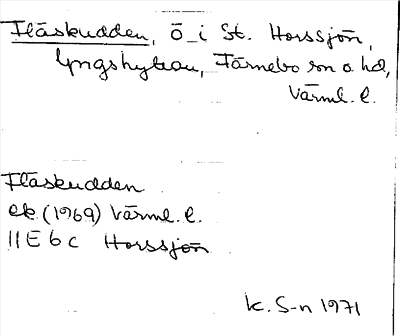 Fläskudden, ö i St. Horssjön,
Lyngshyttan, Färnebo sn o hd,
Värml. l.
Fläskudden
ek. (1969) Värml. l.
11E 6c Horssjön
K. S-n 1971